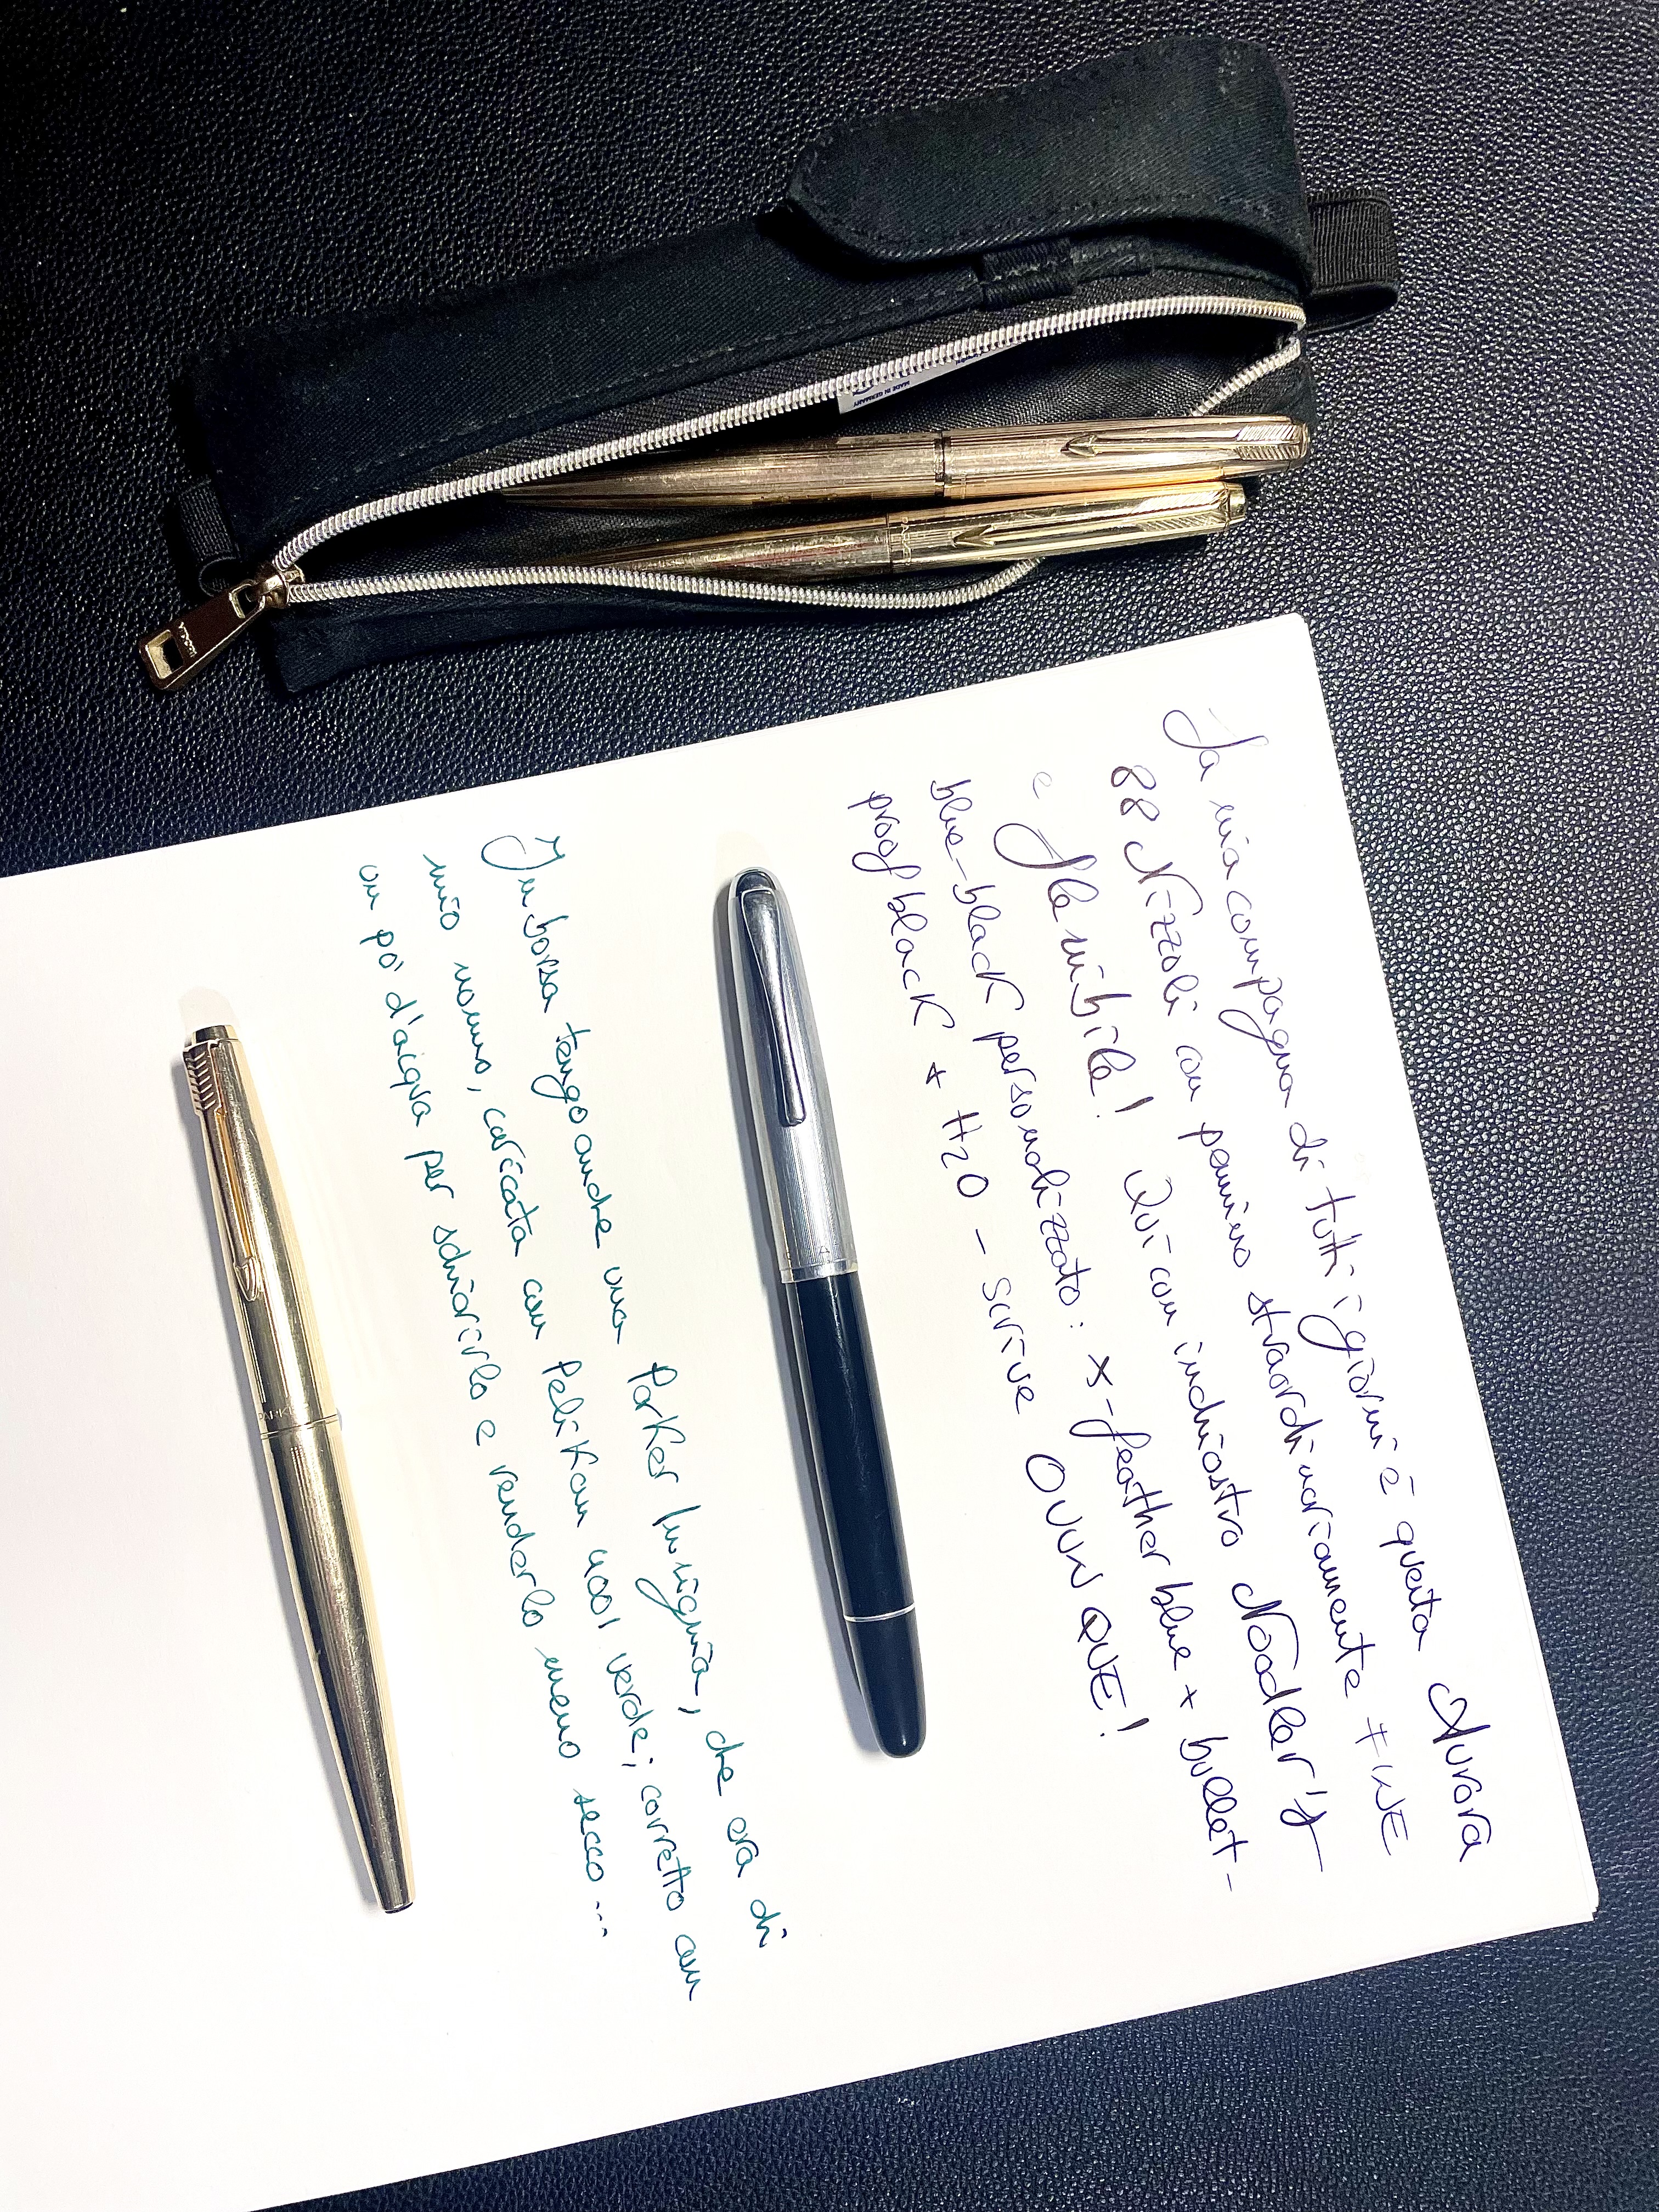 La mia compagna di tutti i giorni è questa Aurora
88 Nizzoli con pennino straordinariamente FINE
e flessibile! Qui con inchiostro Noodler's
blue-black personalizzato: x-feather blue + bullet-
proof black + H2O - scrive OVUNQUE!
In borsa tengo anche una Parker Insignia, che era di
mio nonno, caricata con Pelikan 4001 verde; corretto con
un pò d'acqua per schiarirlo e renderlo meno secco...
PARKER
MADE IN GERMANY